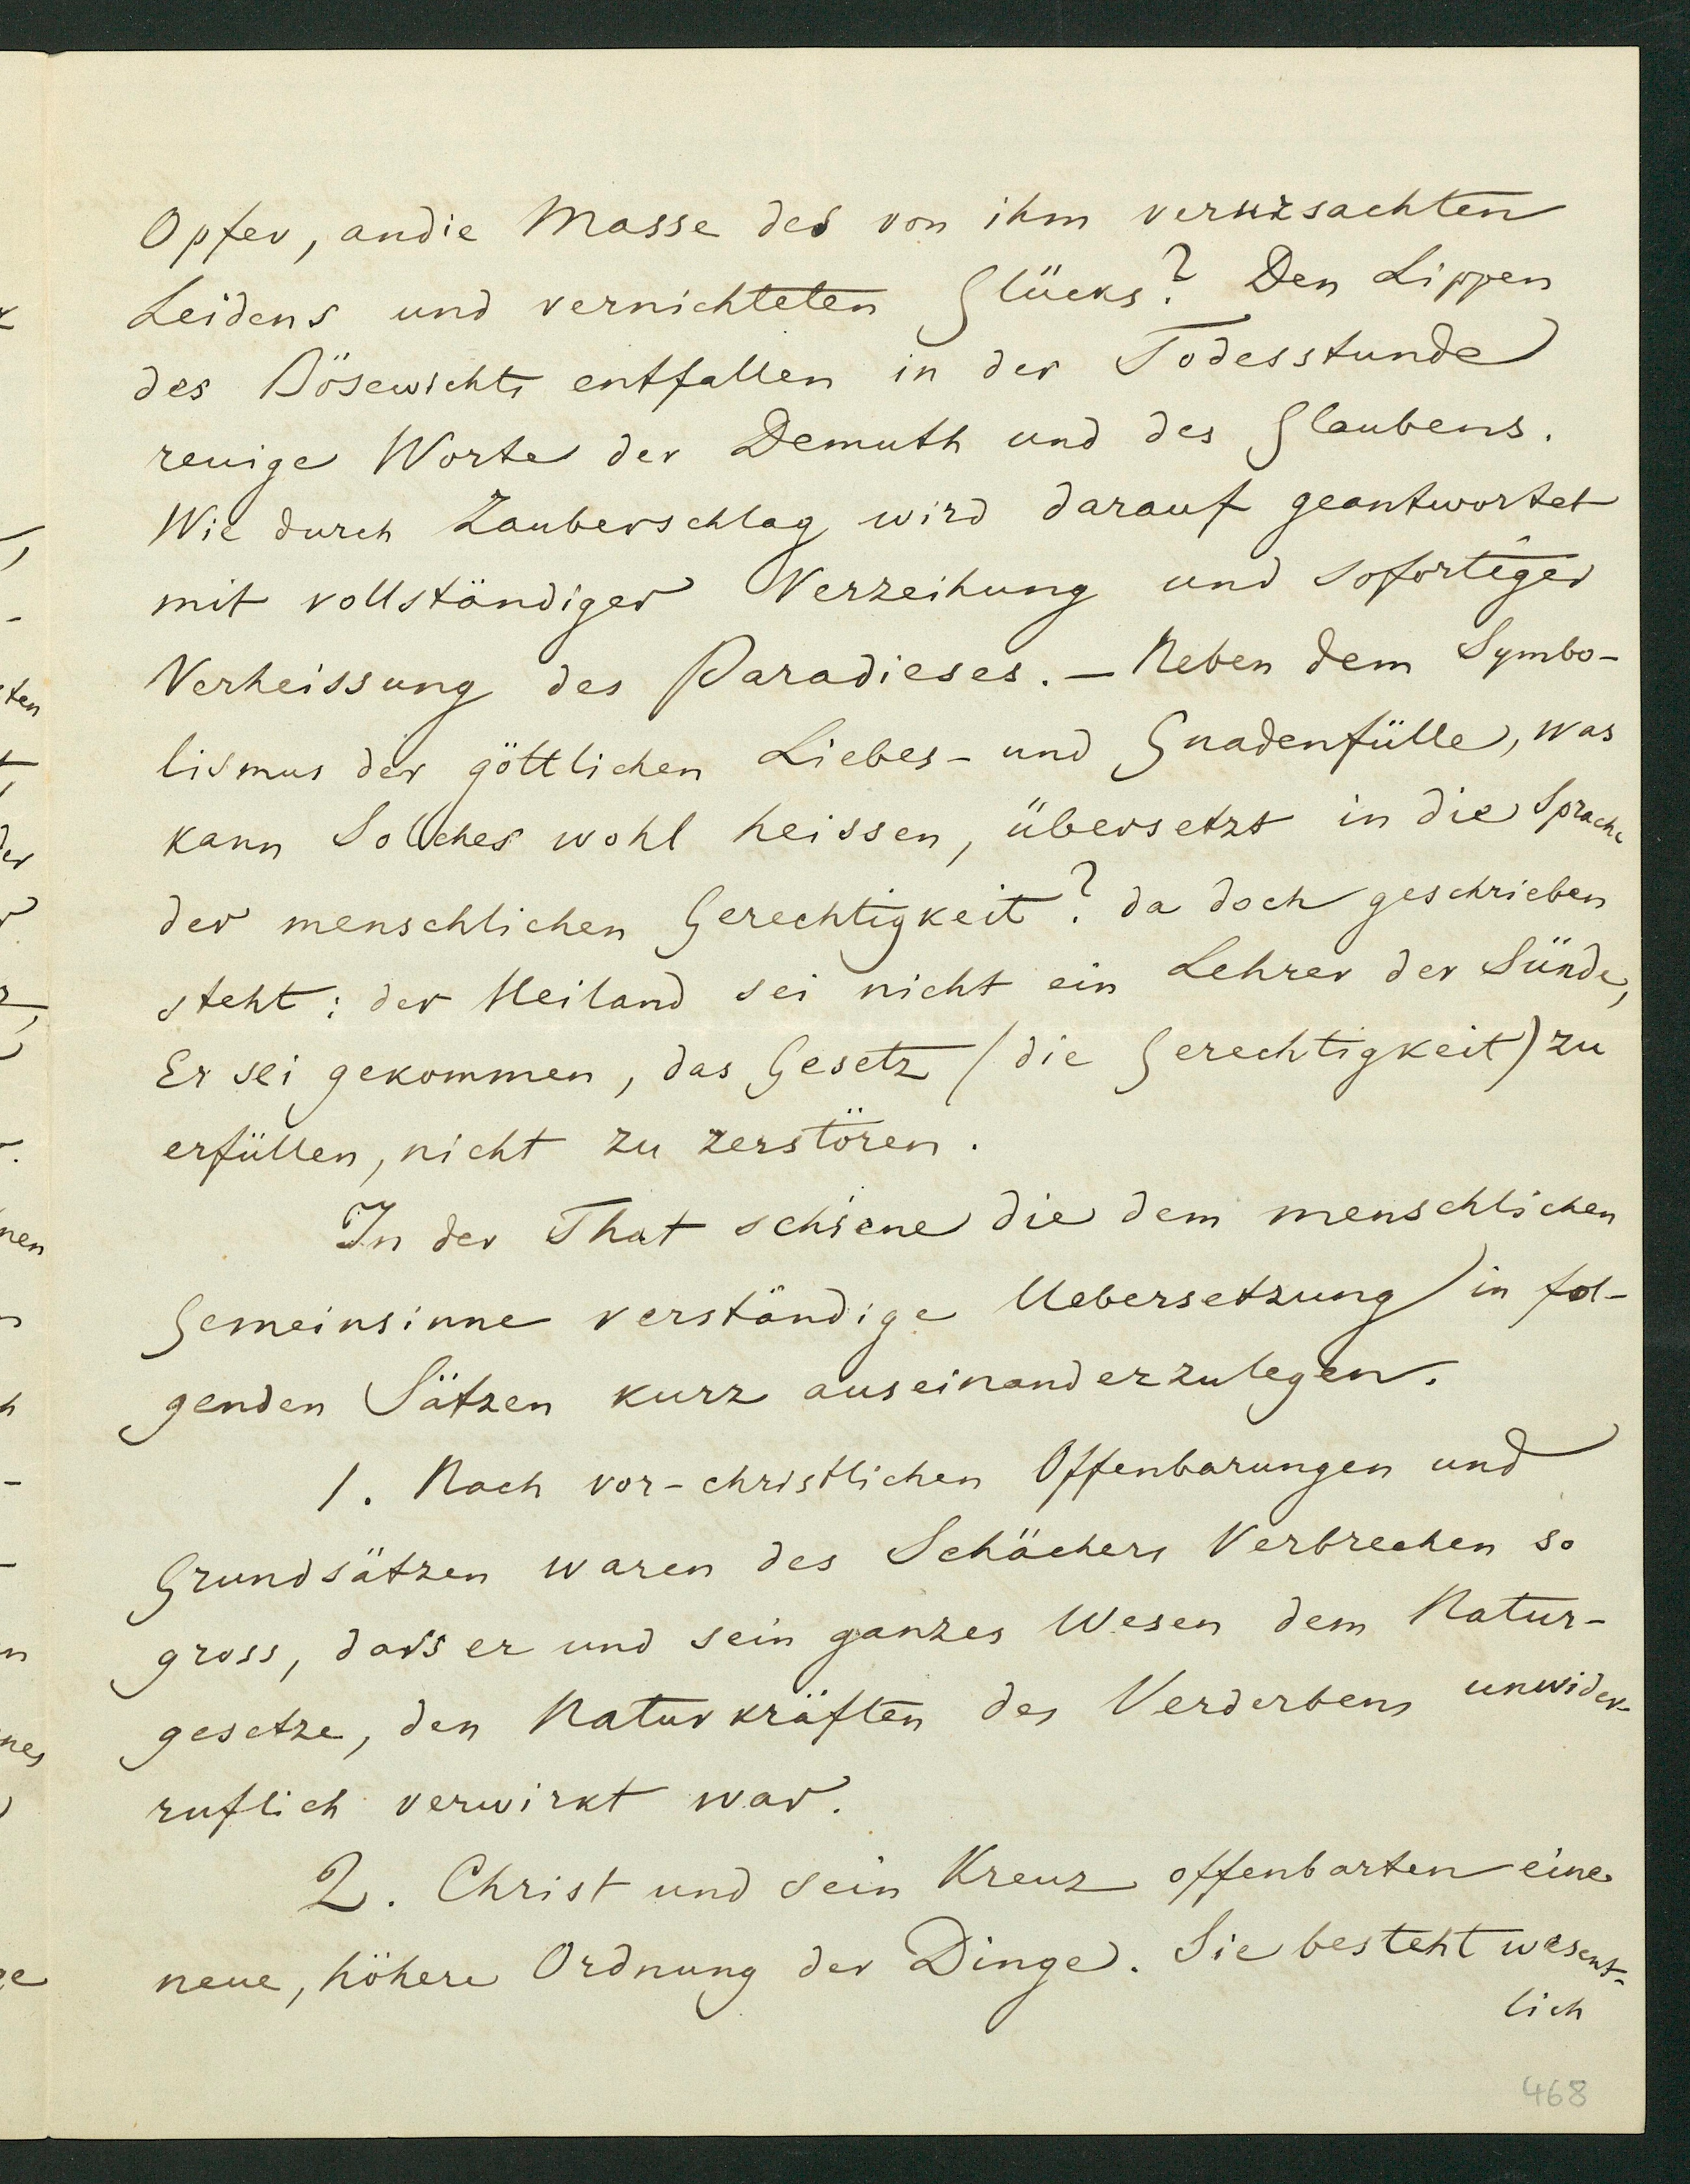 Opfer, an die Masse des von ihm verursachten
Leidens und vernichteten Glücks? Den Lippen
des Bösewichts entfallen in der Todesstunde
reuige Worte der Demuth und des Glaubens.
Wie durch Zauberschlag wird darauf geantwortet
mit vollständiger Verzeihung und sofortiger
Verheissung des Paradieses. — Neben dem Symbo-
lismus der göttlichen Liebes- und Gnadenfülle, was
kann Solches wohl heissen, übersetzt in die Sprache
der menschlichen Gerechtigkeit? da doch geschrieben
steht: der Heiland sei nicht ein Lehrer der Sünde,
Er sei gekommen, das Gesetz (die Gerechtigkeit) zu
erfüllen, nicht zu zerstören.
In der That schiene die dem menschlichen
Gemeinsinne verständige Uebersetzung in fol-
genden Sätzen kurz auseinanderzulegen.
1. Nach vor-christlichen Offenbarungen und
Grundsätzen waren des Schächers Verbrechen so
gross, dass er und sein ganzes Wesen dem Natur-
gesetze, den Naturkräften des Verderbens unwider-
ruflich verwirkt war.
2. Christ und sein Kreuz offenbarten eine
neue, höhere Ordnung der Dinge. Sie besteht wesent-
lich
468